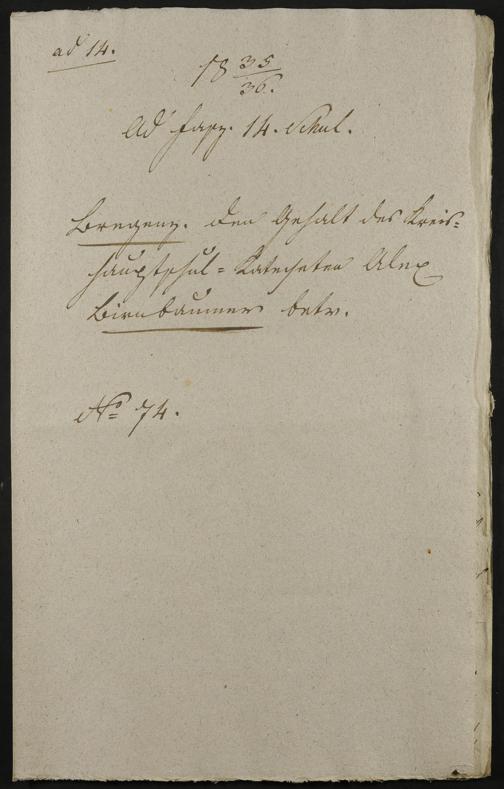 ad 14.
18 35/36.
Ad Fasz. 14. Schul.
Bregenz. den Gehalt des Kreis=
hauptschul=Katecheten Alex
Birnbaumer betr.
No 74.